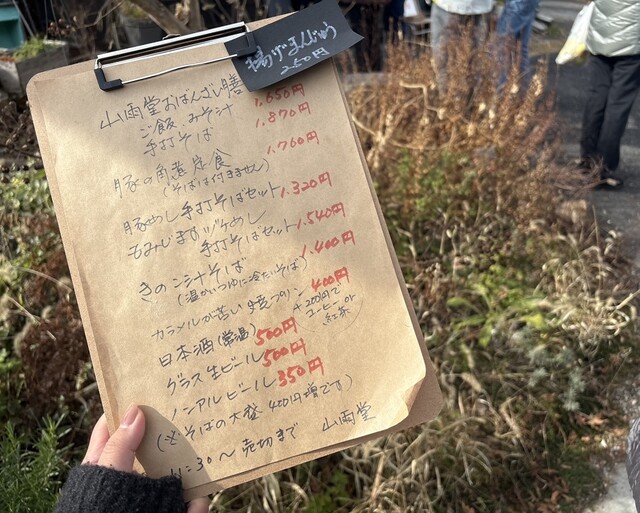 揚げまんじゅう
250円
山雨堂おばんざい膳 1.650円
ご飯、みそ汁
手打そば 1.870円
豚の角煮定食 1.760円
(そばは付きません)
豚めし手打そばセット 1.320円
もみじますづけめし
手打そばセット 1.540円
きのこ汁そば 1.400円
(温かいつゆに冷たいそば)
カラメルが苦い プリン 400円
+200円で
コーヒー or
紅茶
日本酒(常温) 500円
グラス生ビール 500円
ノンアルビール 350円
(※そばの大盛 400円増です)
11:30〜売切まで 山雨堂